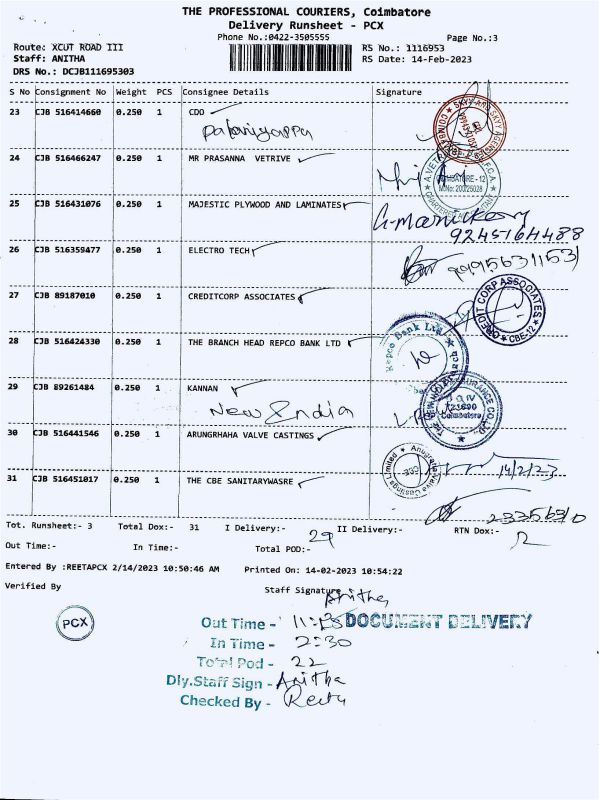 THE PROFESSIONAL COURIERS, Coimbatore
Delivery Runsheet - PCX
Phone No.:0422-3505555
Page No.:3
Route: XCUT ROAD III
RS No.: 1116953
Staff: ANITHA
RS Date: 14-Feb-2023
DRS No.: DCJB111695303
S No Consignment No Weight PCS Consignee Details Signature
23 CJB 516414660 0.250 1 CDO
Palaniyappa
24 CJB 516466247 0.250 1 MR PRASANNA VETRIVE
25 CJB 516431076 0.250 1 MAJESTIC PLYWOOD AND LAMINATES
G.Manickam
9245164488
26 CJB 516359477 0.250 1 ELECTRO TECH
27 CJB 89187010 0.250 1 CREDITCORP ASSOCIATES
CREDIT CORP ASSOCIATES
CBE-12
28 CJB 516424330 0.250 1 THE BRANCH HEAD REPCO BANK LTD
Repco Bank Ltd
29 CJB 89261484 0.250 1 KANNAN
New India
30 CJB 516441546 0.250 1 ARUNGRHAHA VALVE CASTINGS
14/2/23
31 CJB 516451017 0.250 1 THE CBE SANITARYWASRE
Tot. Runsheet:- 3 Total Dox:- 31 I Delivery:- 29 II Delivery:- RTN Dox:- 2
Out Time:- In Time:- Total POD:-
Entered By :REETAPCX 2/14/2023 10:50:46 AM Printed On: 14-02-2023 10:54:22
Verified By
Staff Signature
Anitha
PCX
Out Time -
DOCUMENT DELIVERY
In Time - 2:30
Total Pod - 22
Dly.Staff Sign - Anitha
Checked By - Reeta